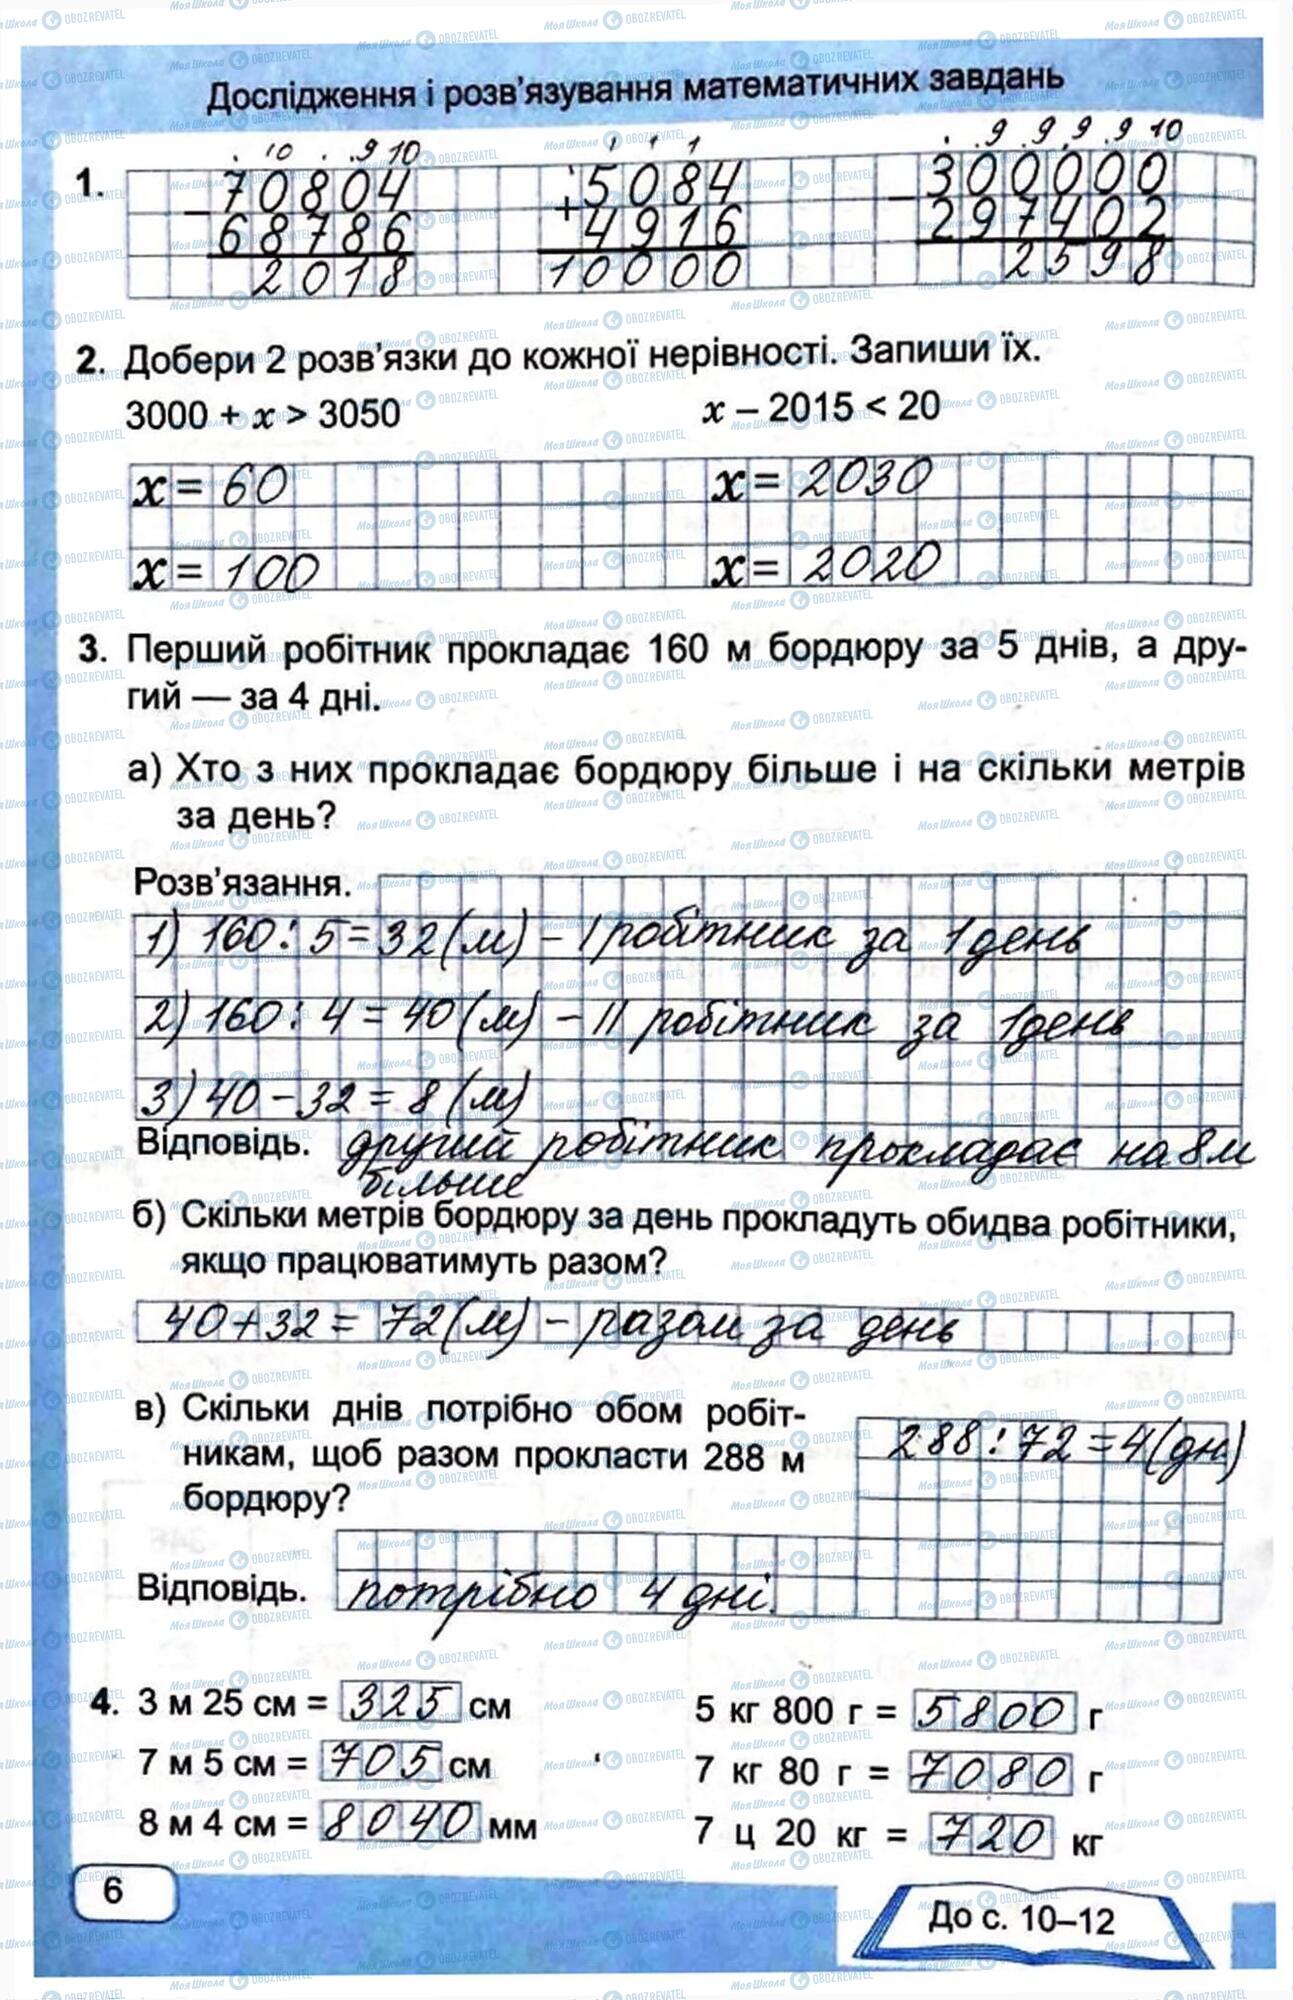 Дослідження і розв'язування математичних завдань
. 10 . . 9 10
1 1 1
. . 9 . 9 . 9 . 9 10
1.
70804
5084
300000
− 68786
+ 4916
− 297402
2018
10000
2598
2. Добери 2 розв'язки до кожної нерівності. Запиши їх.
3000 + x > 3050
x – 2015 < 20
x = 60
x = 2030
x = 100
x = 2020
3. Перший робітник прокладає 160 м бордюру за 5 днів, а дру-
гий — за 4 дні.
а) Хто з них прокладає бордюру більше і на скільки метрів
за день?
Розв'язання.
1) 160 : 5 = 32 (м) – І робітник за 1 день
2) 160 : 4 = 40 (м) – ІІ робітник за 1 день
3) 40 – 32 = 8 (м)
Відповідь. другий робітник прокладає на 8 м
більше
б) Скільки метрів бордюру за день прокладуть обидва робітники,
якщо працюватимуть разом?
40 + 32 = 72 (м) – разом за день
в) Скільки днів потрібно обом робіт-
никам, щоб разом прокласти 288 м
бордюру?
288 : 72 = 4 (дні)
Відповідь. потрібно 4 дні.
4. 3 м 25 см = 325 см
5 кг 800 г = 5800 г
7 м 5 см = 705 см
7 кг 80 г = 7080 г
8 м 4 см = 8040 мм
7 ц 20 кг = 720 кг
6
До с. 10–12
МояШкола OBOZREVATEL